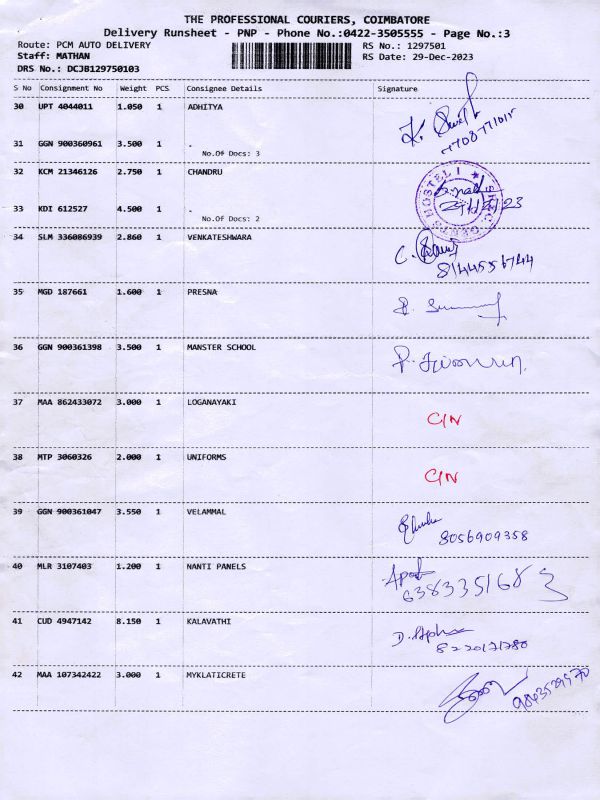 THE PROFESSIONAL COURIERS, COIMBATORE
Delivery Runsheet - PNP - Phone No.:0422-3505555 - Page No.:3
Route: PCM AUTO DELIVERY RS No.: 1297501
Staff: MATHAN RS Date: 29-Dec-2023
DRS No.: DCJB129750103
S No Consignment No Weight PCS Consignee Details Signature
30 UPT 4044011 1.050 1 ADHITYA
7708771015
31 GGN 900360961 3.500 1 .
No.Of Docs: 3
32 KCM 21346126 2.750 1 CHANDRU
33 KDI 612527 4.500 1 .
No.Of Docs: 2
34 SLM 336086939 2.860 1 VENKATESHWARA
8144556744
35 MGD 187661 1.600 1 PRESNA
36 GGN 900361398 3.500 1 MANSTER SCHOOL
37 MAA 862433072 3.000 1 LOGANAYAKI
C/N
38 MTP 3060326 2.000 1 UNIFORMS
C/N
39 GGN 900361047 3.550 1 VELAMMAL
8056909358
40 MLR 3107403 1.200 1 NANTI PANELS
6383351683
41 CUD 4947142 8.150 1 KALAVATHI
42 MAA 107342422 3.000 1 MYKLATICRETE